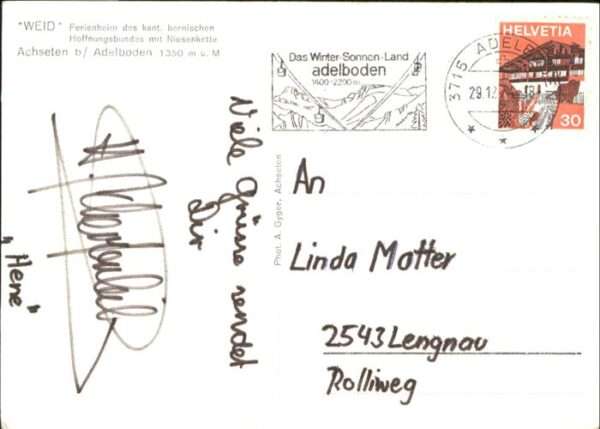 "WEID" Ferienheim des kant. bernischen
Hoffnungsbundes mit Niesenkette
Achseten b/ Adelboden 1350 m ü. M
Das Winter-Sonnen-Land
adelboden
1400-2200 m
3715 ADELB
29.12
HELVETIA
30
Viele Grüsse sendet
Dir
"Hene"
Phot. A. Gyger, Achseten
An
Linda Motter
2543 Lengnau
Rolliweg